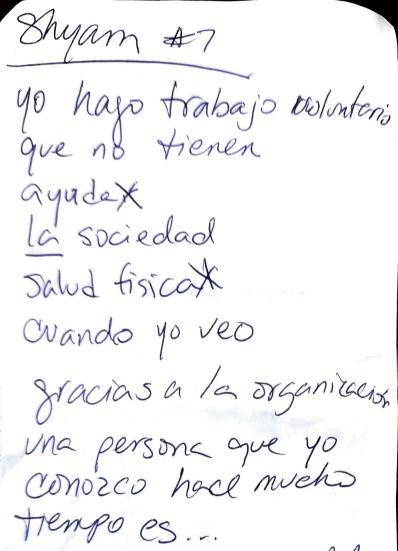 Shyam #7
yo hago trabajo voluntario
que no tienen
ayuda
la sociedad
salud física
cuando yo veo
gracias a la organización
una persona que yo
conozco hace mucho
tiempo es...